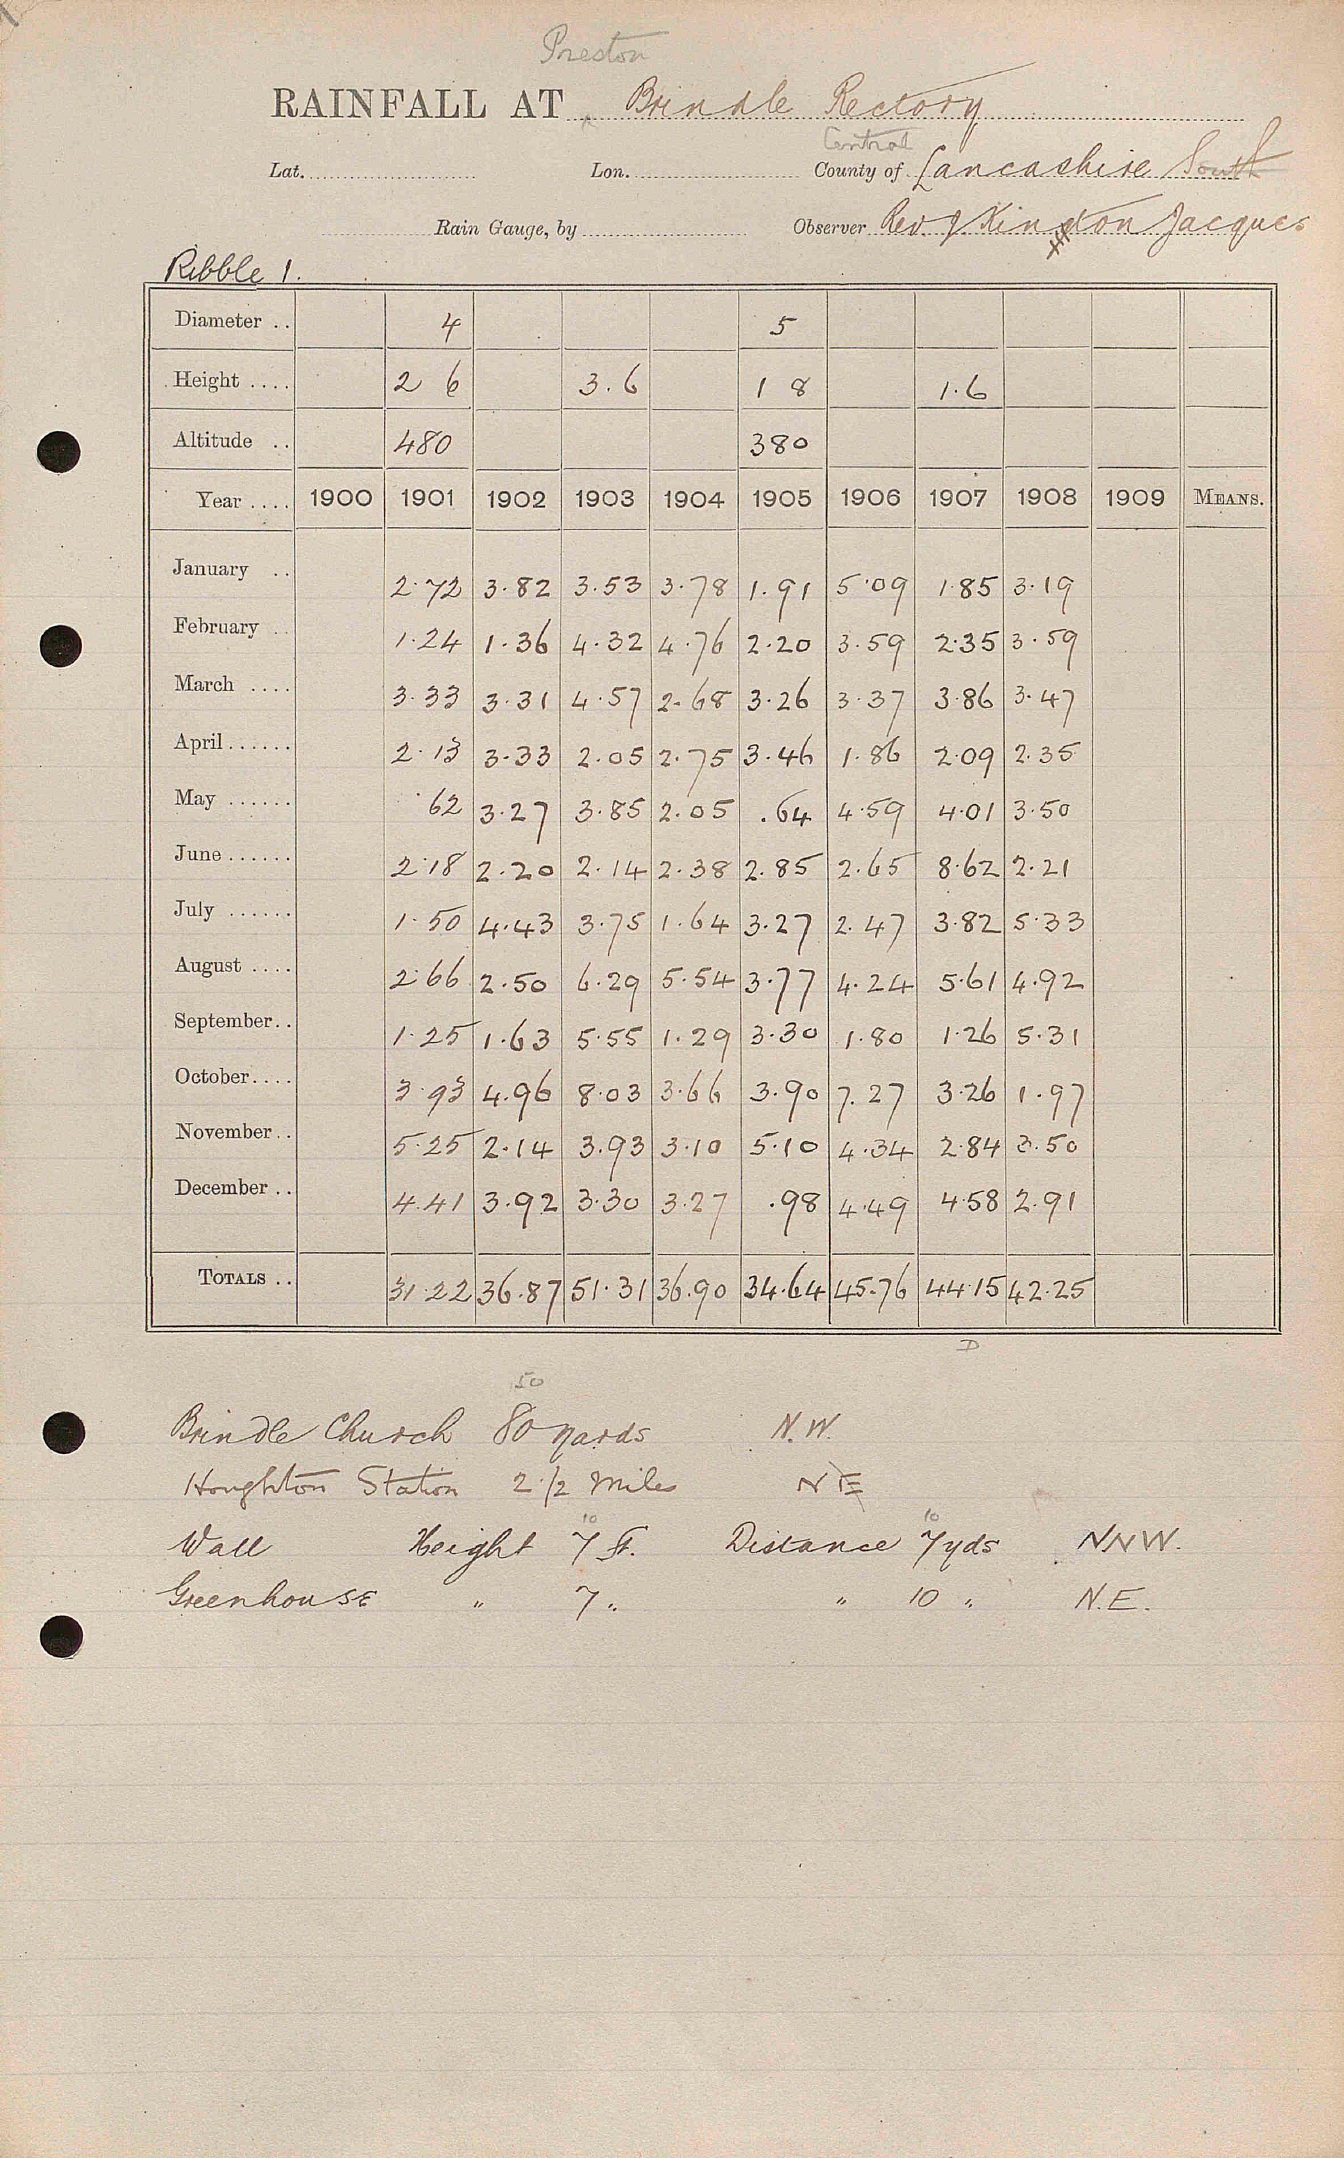 Preston
RAINFALL AT Brindle Rectory
Central
Lat. Lon. County of Lancashire South
Rain Gauge, by Observer Rev. J. Kington Jacques
Ribble 1.
Diameter .. 4 5
Height .... 2 6 3.6 1 8 1.6
Altitude .. 480 380
Year .... 1900 1901 1902 1903 1904 1905 1906 1907 1908 1909 MEANS.
January .. 2.72 3.82 3.53 3.78 1.91 5.09 1.85 3.19
February .. 1.24 1.36 4.32 4.76 2.20 3.59 2.35 3.59
March .... 3.33 3.31 4.57 2.68 3.26 3.37 3.86 3.47
April ...... 2.13 3.33 2.05 2.75 3.46 1.86 2.09 2.35
May ...... .62 3.27 3.85 2.05 .64 4.59 4.01 3.50
June ...... 2.18 2.20 2.14 2.38 2.85 2.65 8.62 2.21
July ...... 1.50 4.43 3.75 1.64 3.27 2.47 3.82 5.33
August .... 2.66 2.50 6.29 5.54 3.77 4.24 5.61 4.92
September .. 1.25 1.63 5.55 1.29 3.30 1.80 1.26 5.31
October .... 3.93 4.96 8.03 3.66 3.90 7.27 3.26 1.97
November .. 5.25 2.14 3.93 3.10 5.10 4.34 2.84 3.50
December .. 4.41 3.92 3.30 3.27 .98 4.49 4.58 2.91
TOTALS .. 31.22 36.87 51.31 36.90 34.64 45.76 44.15 42.25
D
50
Brindle Church 80 yards N.W.
Houghton Station 2 1/2 Miles N E
10 10
Wall Height 7 ft. Distance 7 yds NNW.
Greenhouse " 7 " " 10 " N.E.